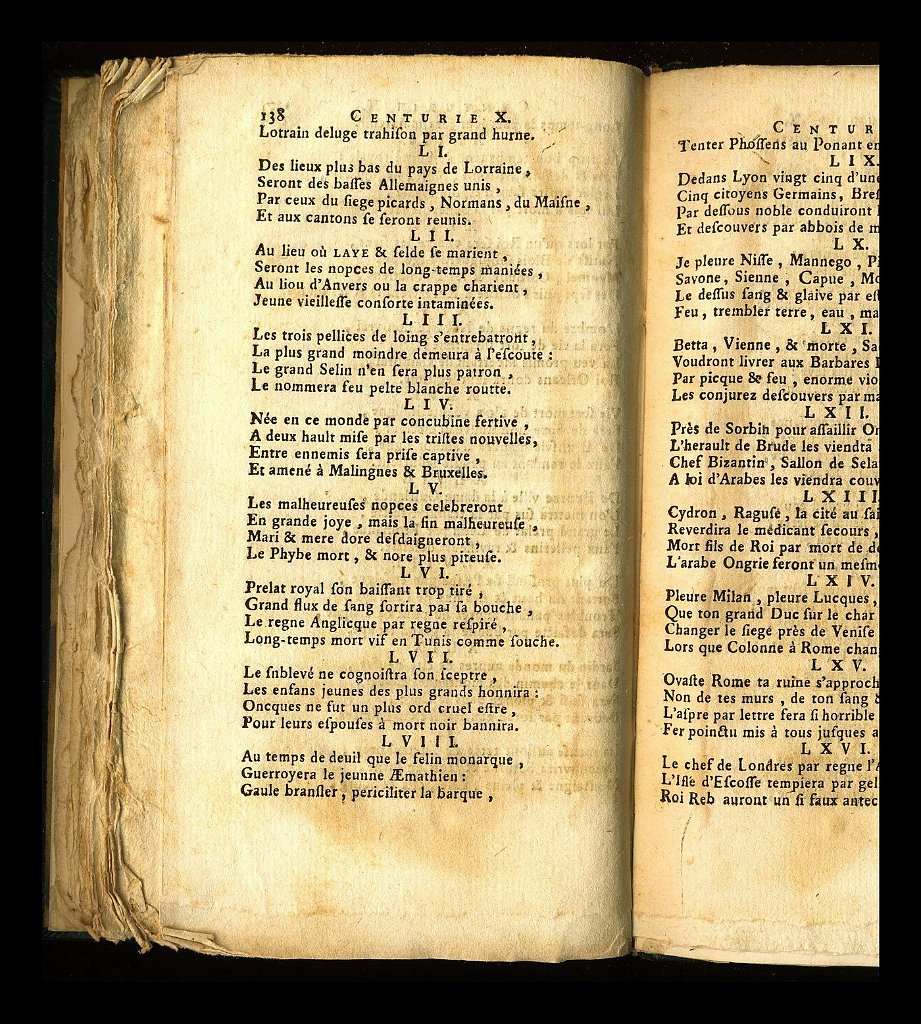 138 CENTURIE X.
Lotrain deluge trahiſon par grand hurne.
L I.
Des lieux plus bas du pays de Lorraine,
Seront des baſſes Allemaignes unis,
Par ceux du ſiege picards, Normans, du Maiſne,
Et aux cantons ſe ſeront reunis.
L I I.
Au lieu où LAYE & ſelde ſe marient,
Seront les nopces de long-temps maniées,
Au liou d'Anvers ou la crappe charient,
Jeune vieilleſſe conſorte intaminées.
L I I I.
Les trois pellices de loing s'entrebatront,
La plus grand moindre demeura à l'eſcoute :
Le grand Selin n'en ſera plus patron,
Le nommera feu pelte blanche routte.
L I V.
Née en ce monde par concubine fertive,
A deux hault miſe par les triſtes nouvelles,
Entre ennemis ſera priſe captive,
Et amené à Malingnes & Bruxelles.
L V.
Les malheureuſes nopces celebreront
En grande joye, mais la fin malheureuſe,
Mari & mere dore deſdaigneront,
Le Phybe mort, & nore plus piteuſe.
L V I.
Prelat royal ſon baiſſant trop tiré,
Grand flux de ſang ſortira par ſa bouche,
Le regne Anglicque par regne reſpiré,
Long-temps mort vif en Tunis comme ſouche.
L V I I.
Le ſnblevé ne cognoiſtra ſon ſceptre,
Les enfans jeunes des plus grands honnira :
Oncques ne fut un plus ord cruel eſtre,
Pour leurs eſpouſes à mort noir bannira.
L V I I I.
Au temps de deuil que le felin monarque,
Guerroyera le jeunne Æmathien :
Gaule branſler, periciliter la barque,
CENTUR
Tenter Phoſſens au Ponant en
L I X.
Dedans Lyon vingt cinq d'une
Cinq citoyens Germains, Breſ
Par deſſous noble conduiront
Et deſcouvers par abbois de m
L X.
Je pleure Niſſe, Mannego, P
Savone, Sienne, Capue, Mo
Le deſſus ſang & glaive par eſt
Feu, trembler terre, eau, ma
L X I.
Betta, Vienne, & morte, Sa
Voudront livrer aux Barbares
Par picque & feu, enorme vio
Les conjurez deſcouvers par ma
L X I I.
Près de Sorbin pour aſſaillir On
L'herault de Brude les viendta
Chef Bizantin, Sallon de Sela
A loi d'Arabes les viendra couv
L X I I I.
Cydron, Raguſe, la cité au ſai
Reverdira le médicant ſecours,
Mort fils de Roi par mort de de
L'arabe Ongrie feront un meſme
L X I V.
Pleure Milan, pleure Lucques,
Que ton grand Duc ſur le char
Changer le ſiege près de Veniſe
Lors que Colonne à Rome chan
L X V.
Ovaſte Rome ta ruine s'approch
Non de tes murs, de ton ſang &
L'aſpre par lettre fera ſi horrible
Fer poinctu mis à tous juſques a
L X V I.
Le chef de Londres par regne l'A
L'Iſle d'Eſcoſſe tempiera par gel
Roi Reb auront un ſi faux antec